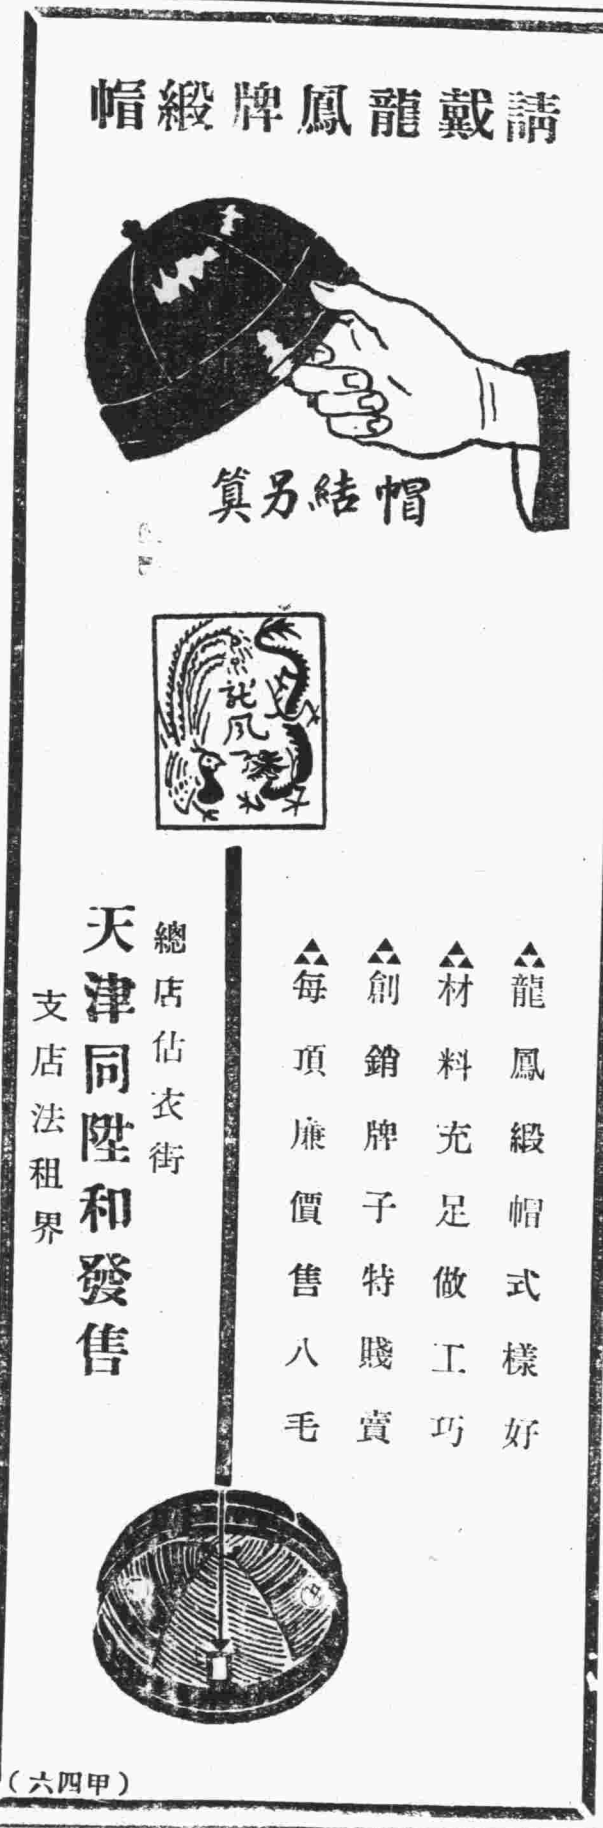 請戴龍鳳牌緞帽
帽結另算
龍鳳
龍鳳緞帽式樣好
材料充足做工巧
創銷牌子特賤賣
每項廉價售八毛
總店估衣街
天津同陞和發售
支店法租界
(甲四六)